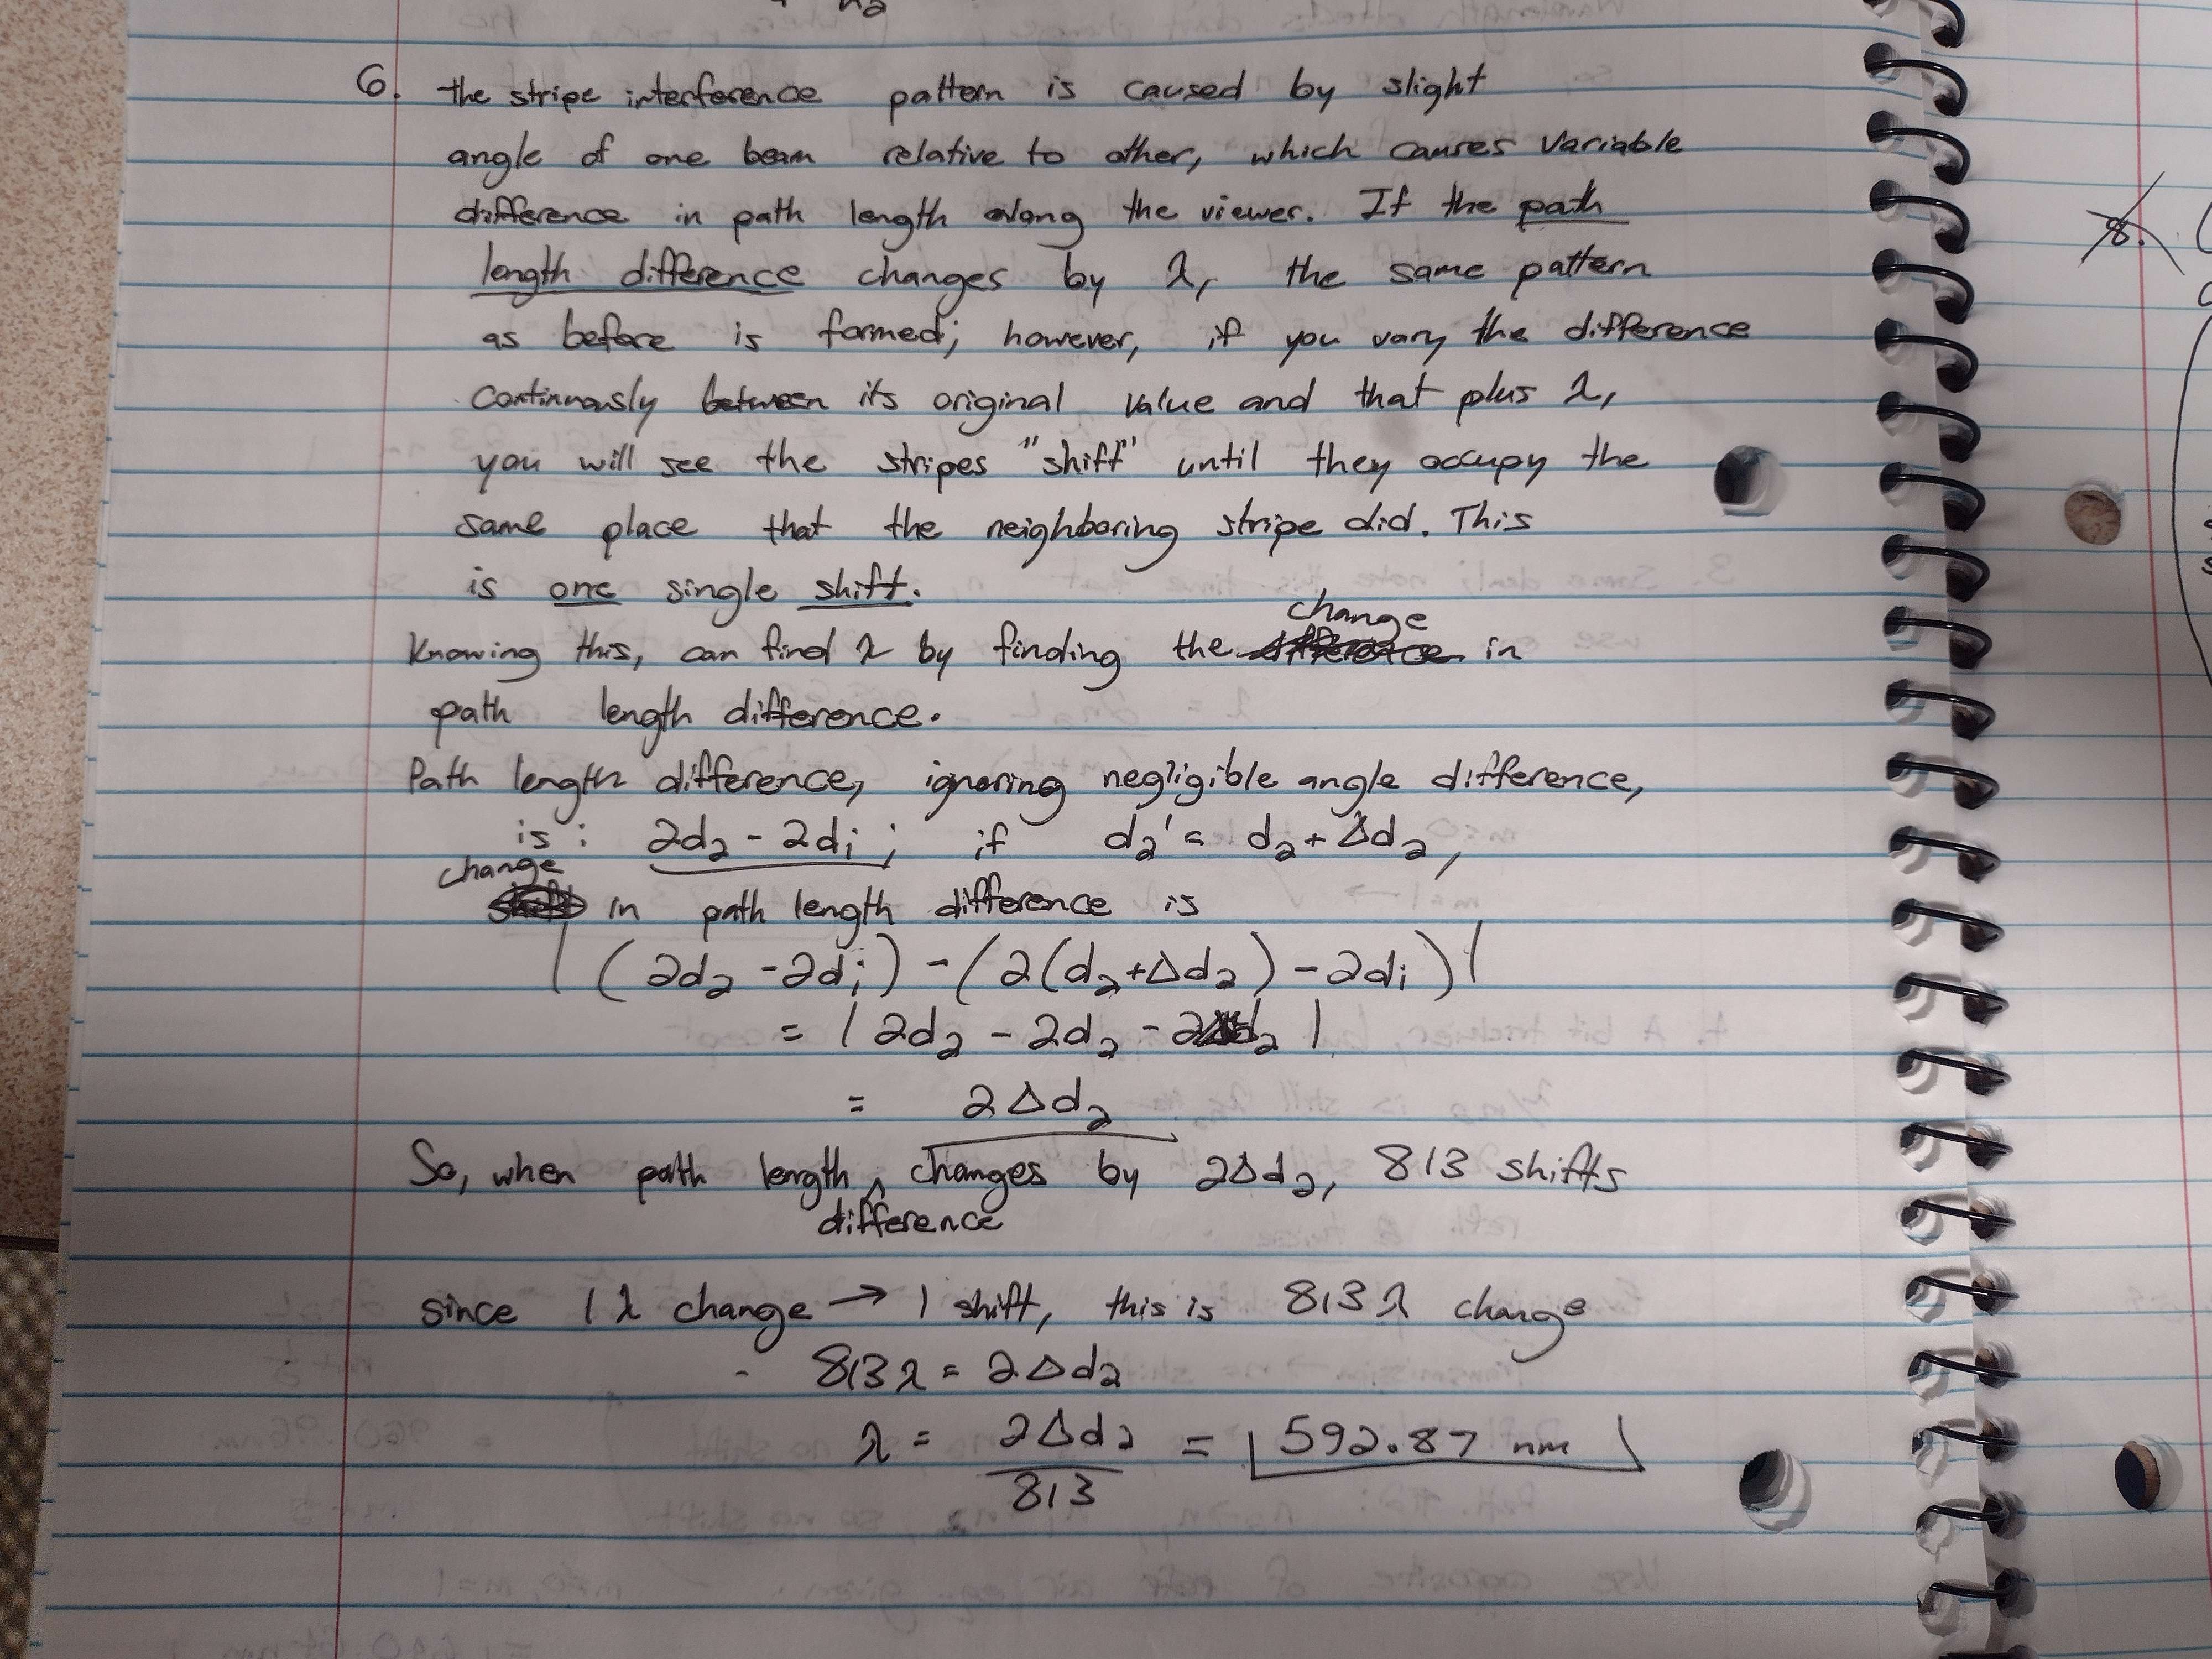 n2
6. the stripe interference pattern is caused by slight
angle of one beam relative to other, which causes variable
difference in path length along the viewer. If the path
length difference changes by λ, the same pattern
as before is formed; however, if you vary the difference
continuously between its original value and that plus λ,
you will see the stripes "shift" until they occupy the
same place that the neighboring stripe did. This
is one single shift.
change
Knowing this, can find λ by finding the difference in
path length difference.
Path length difference, ignoring negligible angle difference,
is: 2d2 - 2d1; if d2' = d2 + Δd2,
change
in path length difference is
|(2d2 - 2d1) - (2(d2+Δd2) - 2d1)|
= |2d2 - 2d2 - 2Δd2|
= 2Δd2
So, when path length ^ changes by 2Δd2, 813 shifts
difference
since 1λ change → 1 shift, this is 813λ change
813λ = 2Δd2
λ = 2Δd2 / 813 = 592.87 nm
8.